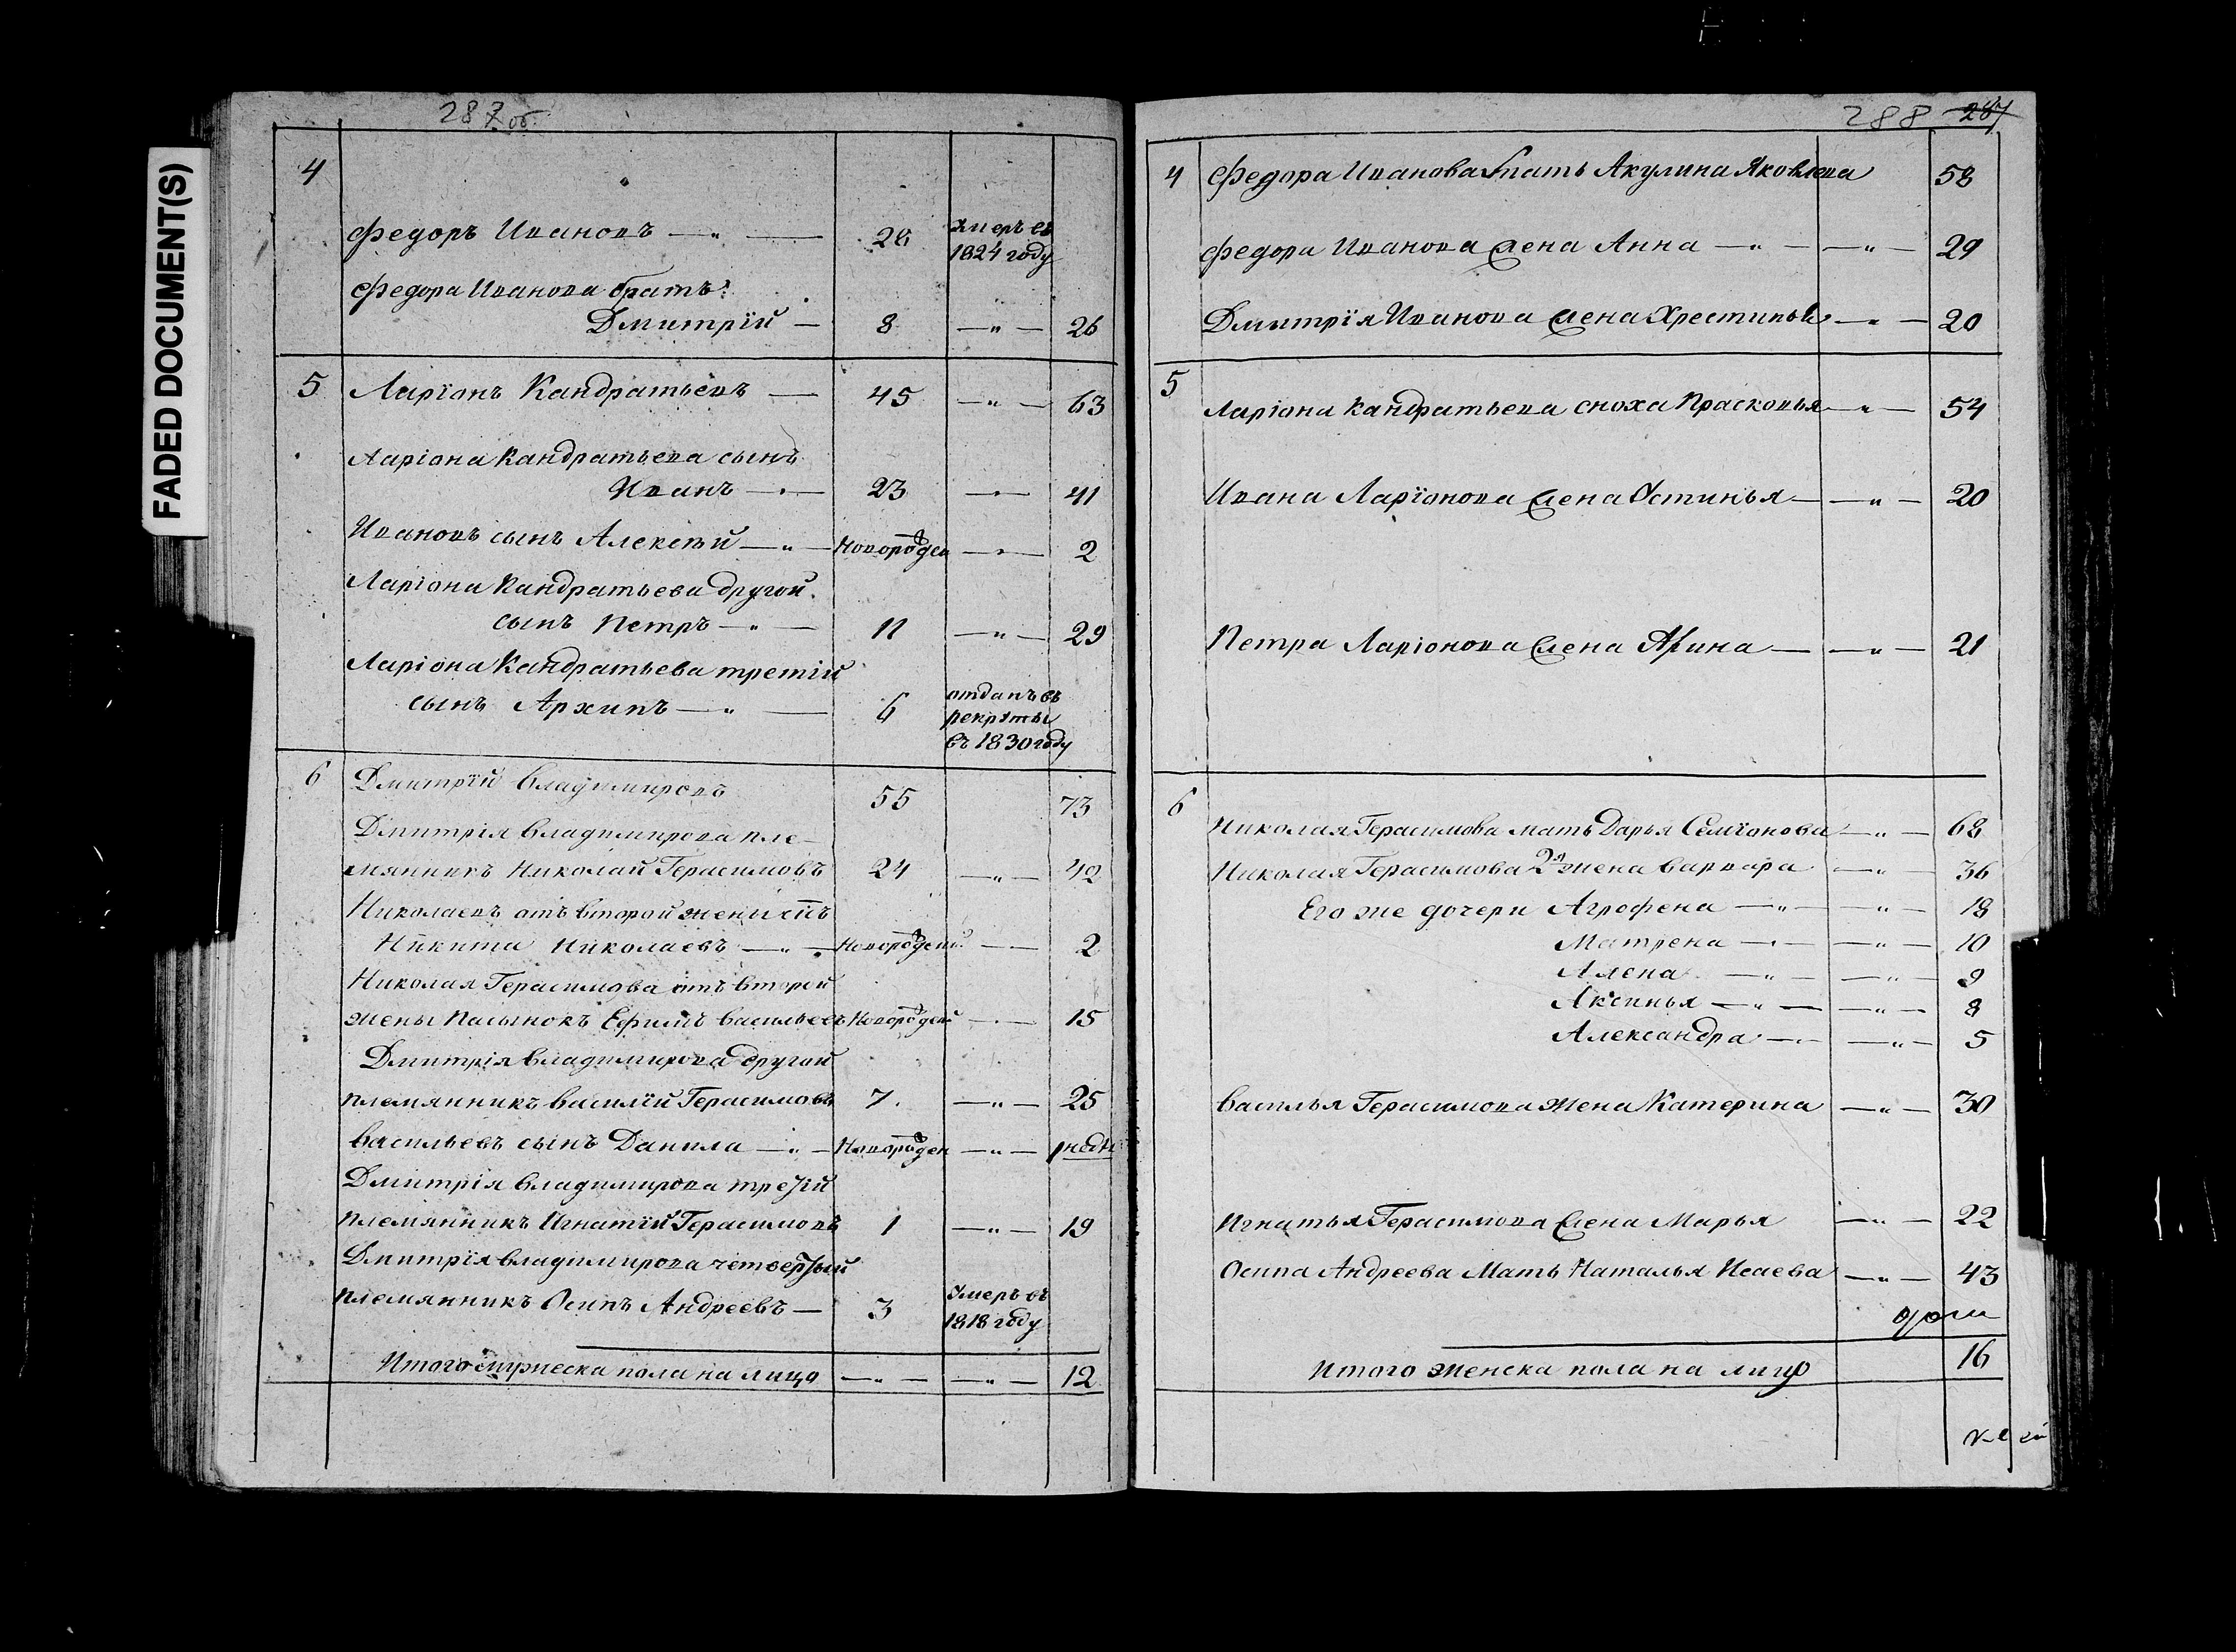 FADED DOCUMENT(S)
287 об.
4
Федоръ Ивановъ — „ — 26 Умеръ въ
1824 году
Федора Иванова братъ
Дмитрій — 8 — „ — 26
5 Ларіонъ Кандратьевъ — 45 — „ — 63
Ларіона Кандратьева сынъ
Иванъ — „ — 23 — „ — 41
Ивановъ сынъ Алексѣй — „ — Новорожден — „ — 2
Ларіона Кандратьева другой
сынъ Петръ — „ — 11 — „ — 29
Ларіона Кандратьева третій
сынъ Архипъ — „ — 6 отданъ въ
рекруты
въ 1830 году
6 Дмитрій Владимировъ 55 73
Дмитрія Владимирова пле-
мянникъ Николай Герасимовъ 24 — „ — 42
Николаевъ отъ второй жены сынъ
Никита Николаевъ — „ — Новорожден — „ — 2
Николая Герасимова отъ второй
жены пасынокъ Ефимъ Васильевъ Новорожден — „ — 15
Дмитрія Владимирова другой
племянникъ Василій Герасимовъ 7 — „ — 25
Васильевъ сынъ Данила — „ — Новорожден — „ — 1 недѣ:
Дмитрія Владимирова третій
племянникъ Игнатій Герасимовъ 1 — „ — 19
Дмитрія Владимирова четвертый
племянникъ Осипъ Андреевъ — 3 Умеръ въ
1818 году
Итого мужеска пола на лицо — „ — — „ — 12
288 287
4 Федора Иванова мать Акулина Яковлева 58
Федора Иванова жена Анна — „ — — „ — 29
Дмитрія Иванова жена Хрестинья — „ — 20
5
Ларіона Кандратьева сноха Прасковья — „ — 54
Ивана Ларіонова жена Устинья — — „ — 20
Петра Ларіонова жена Арина — — „ — 21
6
Николая Герасимова мать Дарья Семіонова — „ — 68
Николая Герасимова 2я жена Варвара — „ — 36
Его же дочери Агрофена — „ — — „ — 18
Матрена — „ — — „ — 10
Алена — „ — — „ — 9
Аксинья — „ — — „ — 8
Александра — „ — — „ — 5
Василья Герасимова жена Катерина — „ — 30
Игнатья Герасимова жена Марья — „ — 22
Осипа Андреева Мать Наталья Исаева — „ — 43
Итого женска пола на лицо 16